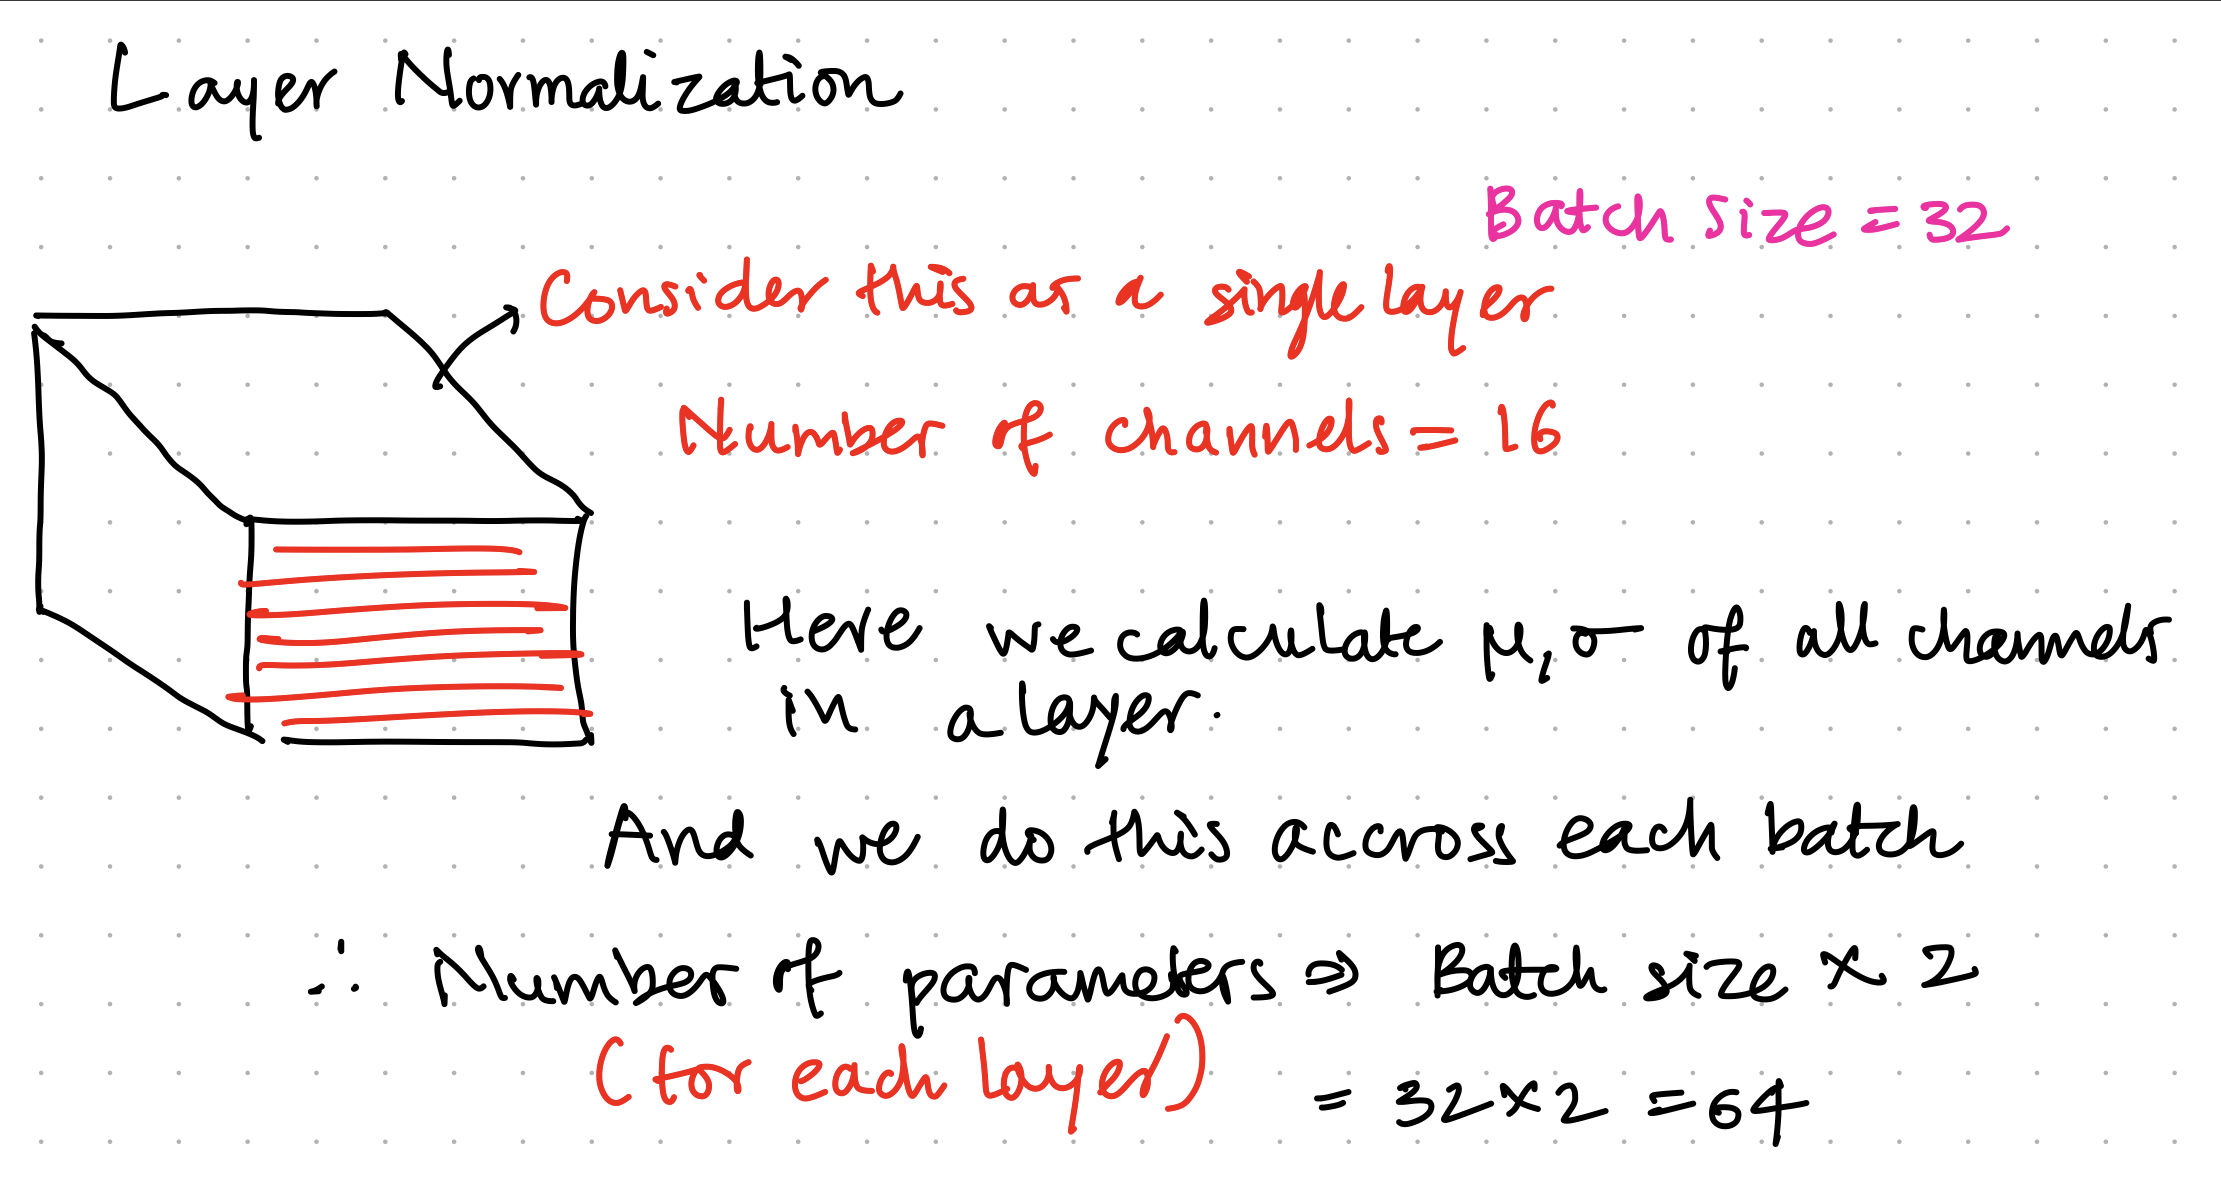 Layer Normalization
Batch size = 32
Consider this as a single layer
Number of channels = 16
Here we calculate μ, σ of all channels
in a layer.
And we do this accross each batch
∴ Number of parameters ⇒ Batch size × 2
(for each layer)
= 32×2 = 64